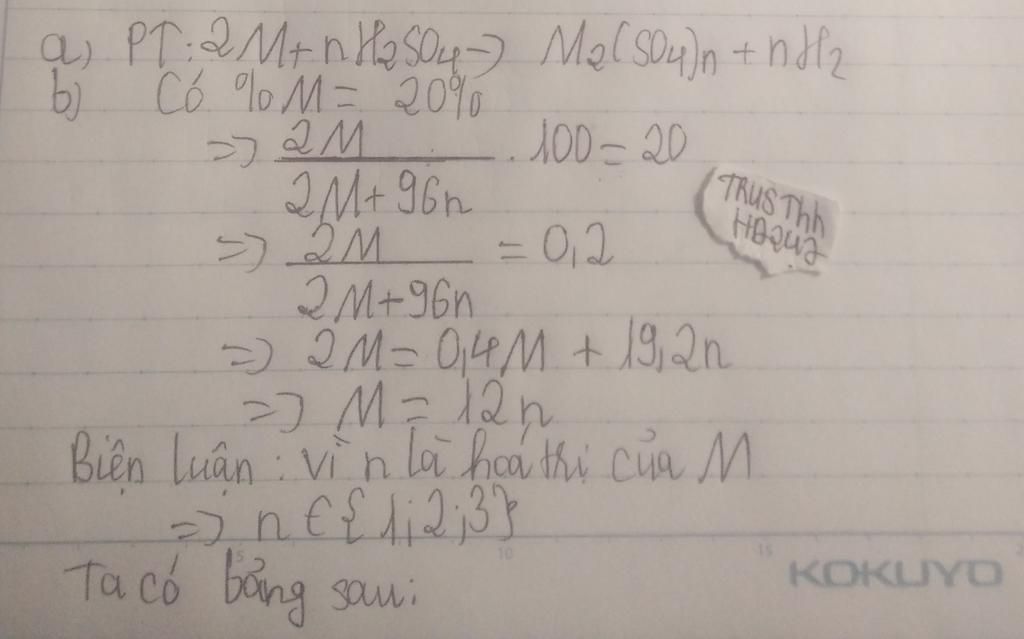 a) PT: 2M + nH₂SO₄ → M₂(SO₄)n + nH₂
b) Có %M = 20%
=> 2M / 2M + 96n . 100 = 20
=> 2M / 2M + 96n = 0,2
=> 2M = 0,4M + 19,2n
=> M = 12n
Biện luận: vì n là hoá thị của M
=> n ∈ {1; 2; 3}
Ta có bảng sau:
5 10 15
KOKUYO